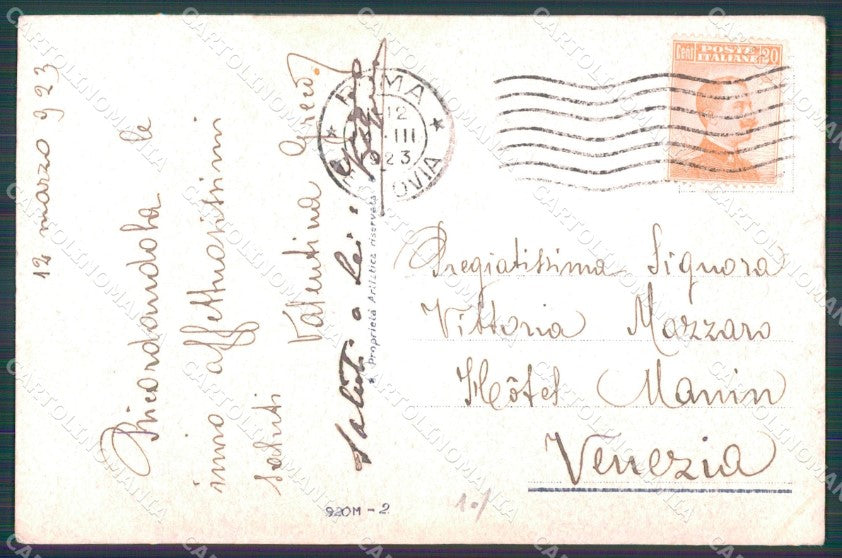 12 marzo 923
Ricordandola le
invio affettuosissimi
saluti
Valentina Greco
Saluti a Lei e
* Proprietà Artistica riservata *
920M - 2
ROMA
12
III
923
OVIA
POSTE
ITALIANE
Cent 20
Pregiatissima Signora
Vittoria Mazzaro
Hôtel Manin
Venezia
CARTOLINOMANIA